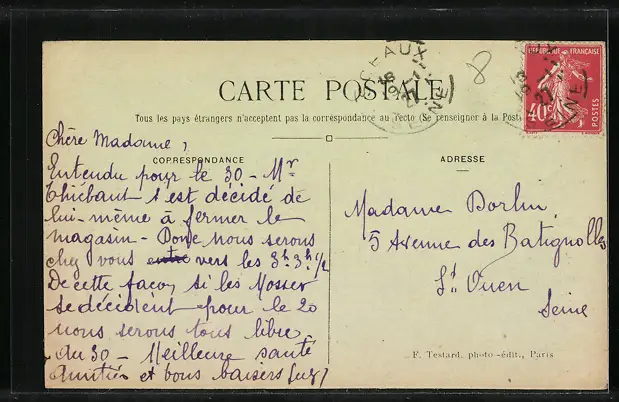 CARTE POSTALE
Tous les pays étrangers n'acceptent pas la correspondance au recto (Se renseigner à la Post
CORRESPONDANCE
Chère Madame,
Entendu pour le 30 - Mr
Thiébaut s'est décidé de
lui-même à fermer le
magasin - Donc nous serons
chez vous entre vers les 3h 3h 1/2
De cette façon si les Mosser
se décident pour le 20
nous serons tous libre
au 30 - Meilleure santé
Amitiés et bons baisers
ADRESSE
Madame Borlin
5 Avenue des Batignolles
St Ouen
Seine
F. Testard, photo-édit., Paris
RÉPUBLIQUE FRANÇAISE
40c
POSTES
SCEAUX
SEINE